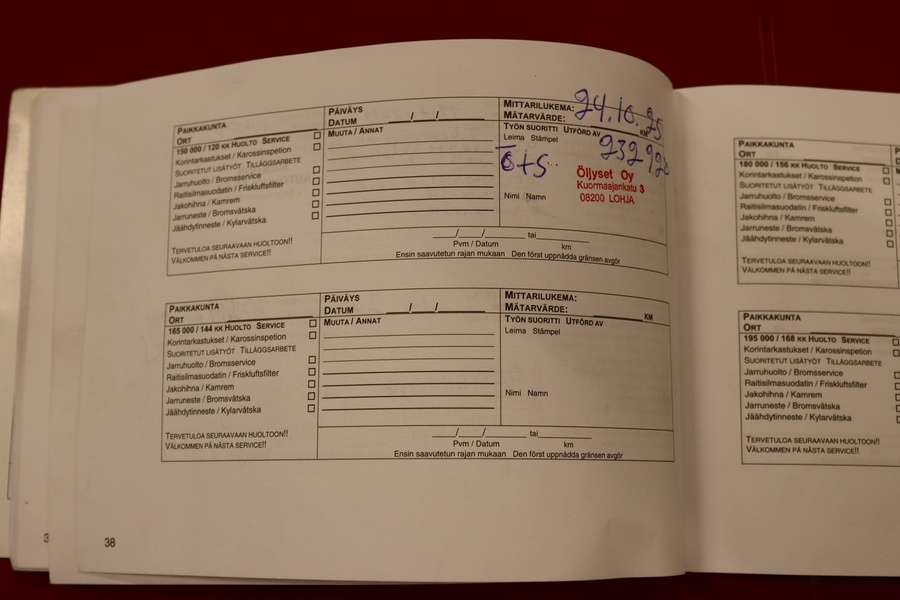 PAIKKAKUNTA
ORT
150 000 / 120 KK HUOLTO SERVICE
Korintarkastukset / Karossinspetion
SUORITETUT LISÄTYÖT TILLÄGGSARBETE
Jarruhuolto / Bromsservice
Raitisilmasuodatin / Friskluftsfilter
Jakohihna / Kamrem
Jarruneste / Bromsvätska
Jäähdytinneste / Kylarvätska
TERVETULOA SEURAAVAAN HUOLTOON!!
VÄLKOMMEN PÅ NÄSTA SERVICE!!
PÄIVÄYS
DATUM / /
MUUTA / ANNAT
MITTARILUKEMA:
MÄTARVÄRDE: KM
24.10.25
TYÖN SUORITTI UTFÖRD AV
Leima Stämpel
Ö+S
Öljyset Oy
Kuormaajankatu 3
08200 LOHJA
Nimi Namn
/ / tai
Pvm / Datum km
Ensin saavutetun rajan mukaan Den först uppnådda gränsen avgör
PAIKKAKUNTA
ORT
165 000 / 144 KK HUOLTO SERVICE
Korintarkastukset / Karossinspetion
SUORITETUT LISÄTYÖT TILLÄGGSARBETE
Jarruhuolto / Bromsservice
Raitisilmasuodatin / Friskluftsfilter
Jakohihna / Kamrem
Jarruneste / Bromsvätska
Jäähdytinneste / Kylarvätska
TERVETULOA SEURAAVAAN HUOLTOON!!
VÄLKOMMEN PÅ NÄSTA SERVICE!!
PÄIVÄYS
DATUM / /
MUUTA / ANNAT
MITTARILUKEMA:
MÄTARVÄRDE: KM
TYÖN SUORITTI UTFÖRD AV
Leima Stämpel
Nimi Namn
/ / tai
Pvm / Datum km
Ensin saavutetun rajan mukaan Den först uppnådda gränsen avgör
38
PAIKKAKUNTA
ORT
180 000 / 156 KK HUOLTO SERVICE
Korintarkastukset / Karossinspetion
SUORITETUT LISÄTYÖT TILLÄGGSARBETE
Jarruhuolto / Bromsservice
Raitisilmasuodatin / Friskluftsfilter
Jakohihna / Kamrem
Jarruneste / Bromsvätska
Jäähdytinneste / Kylarvätska
TERVETULOA SEURAAVAAN HUOLTOON!!
VÄLKOMMEN PÅ NÄSTA SERVICE!!
PAIKKAKUNTA
ORT
195 000 / 168 KK HUOLTO SERVICE
Korintarkastukset / Karossinspetion
SUORITETUT LISÄTYÖT TILLÄGGSARBETE
Jarruhuolto / Bromsservice
Raitisilmasuodatin / Friskluftsfilter
Jakohihna / Kamrem
Jarruneste / Bromsvätska
Jäähdytinneste / Kylarvätska
TERVETULOA SEURAAVAAN HUOLTOON!!
VÄLKOMMEN PÅ NÄSTA SERVICE!!